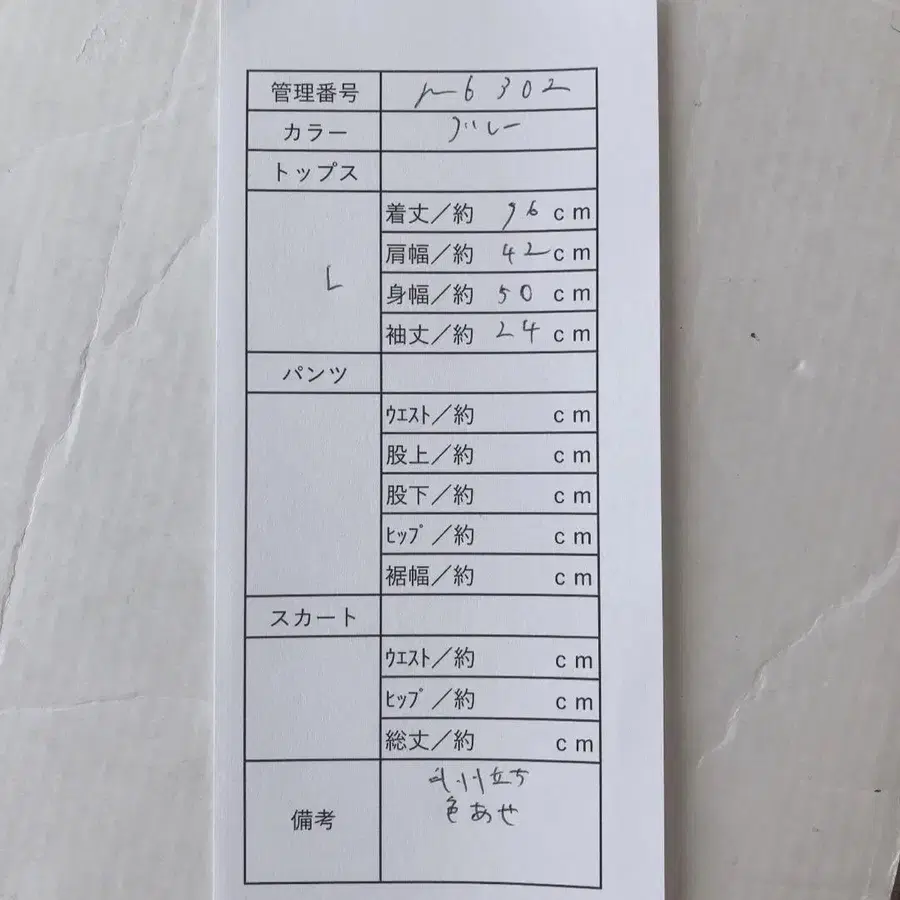 管理番号 r6302
カラー ブルー
トップス
L
着丈／約 76 cm
肩幅／約 42 cm
身幅／約 50 cm
袖丈／約 24 cm
パンツ
ウエスト／約 cm
股上／約 cm
股下／約 cm
ヒップ／約 cm
裾幅／約 cm
スカート
ウエスト／約 cm
ヒップ／約 cm
総丈／約 cm
備考
立ち
色あせ